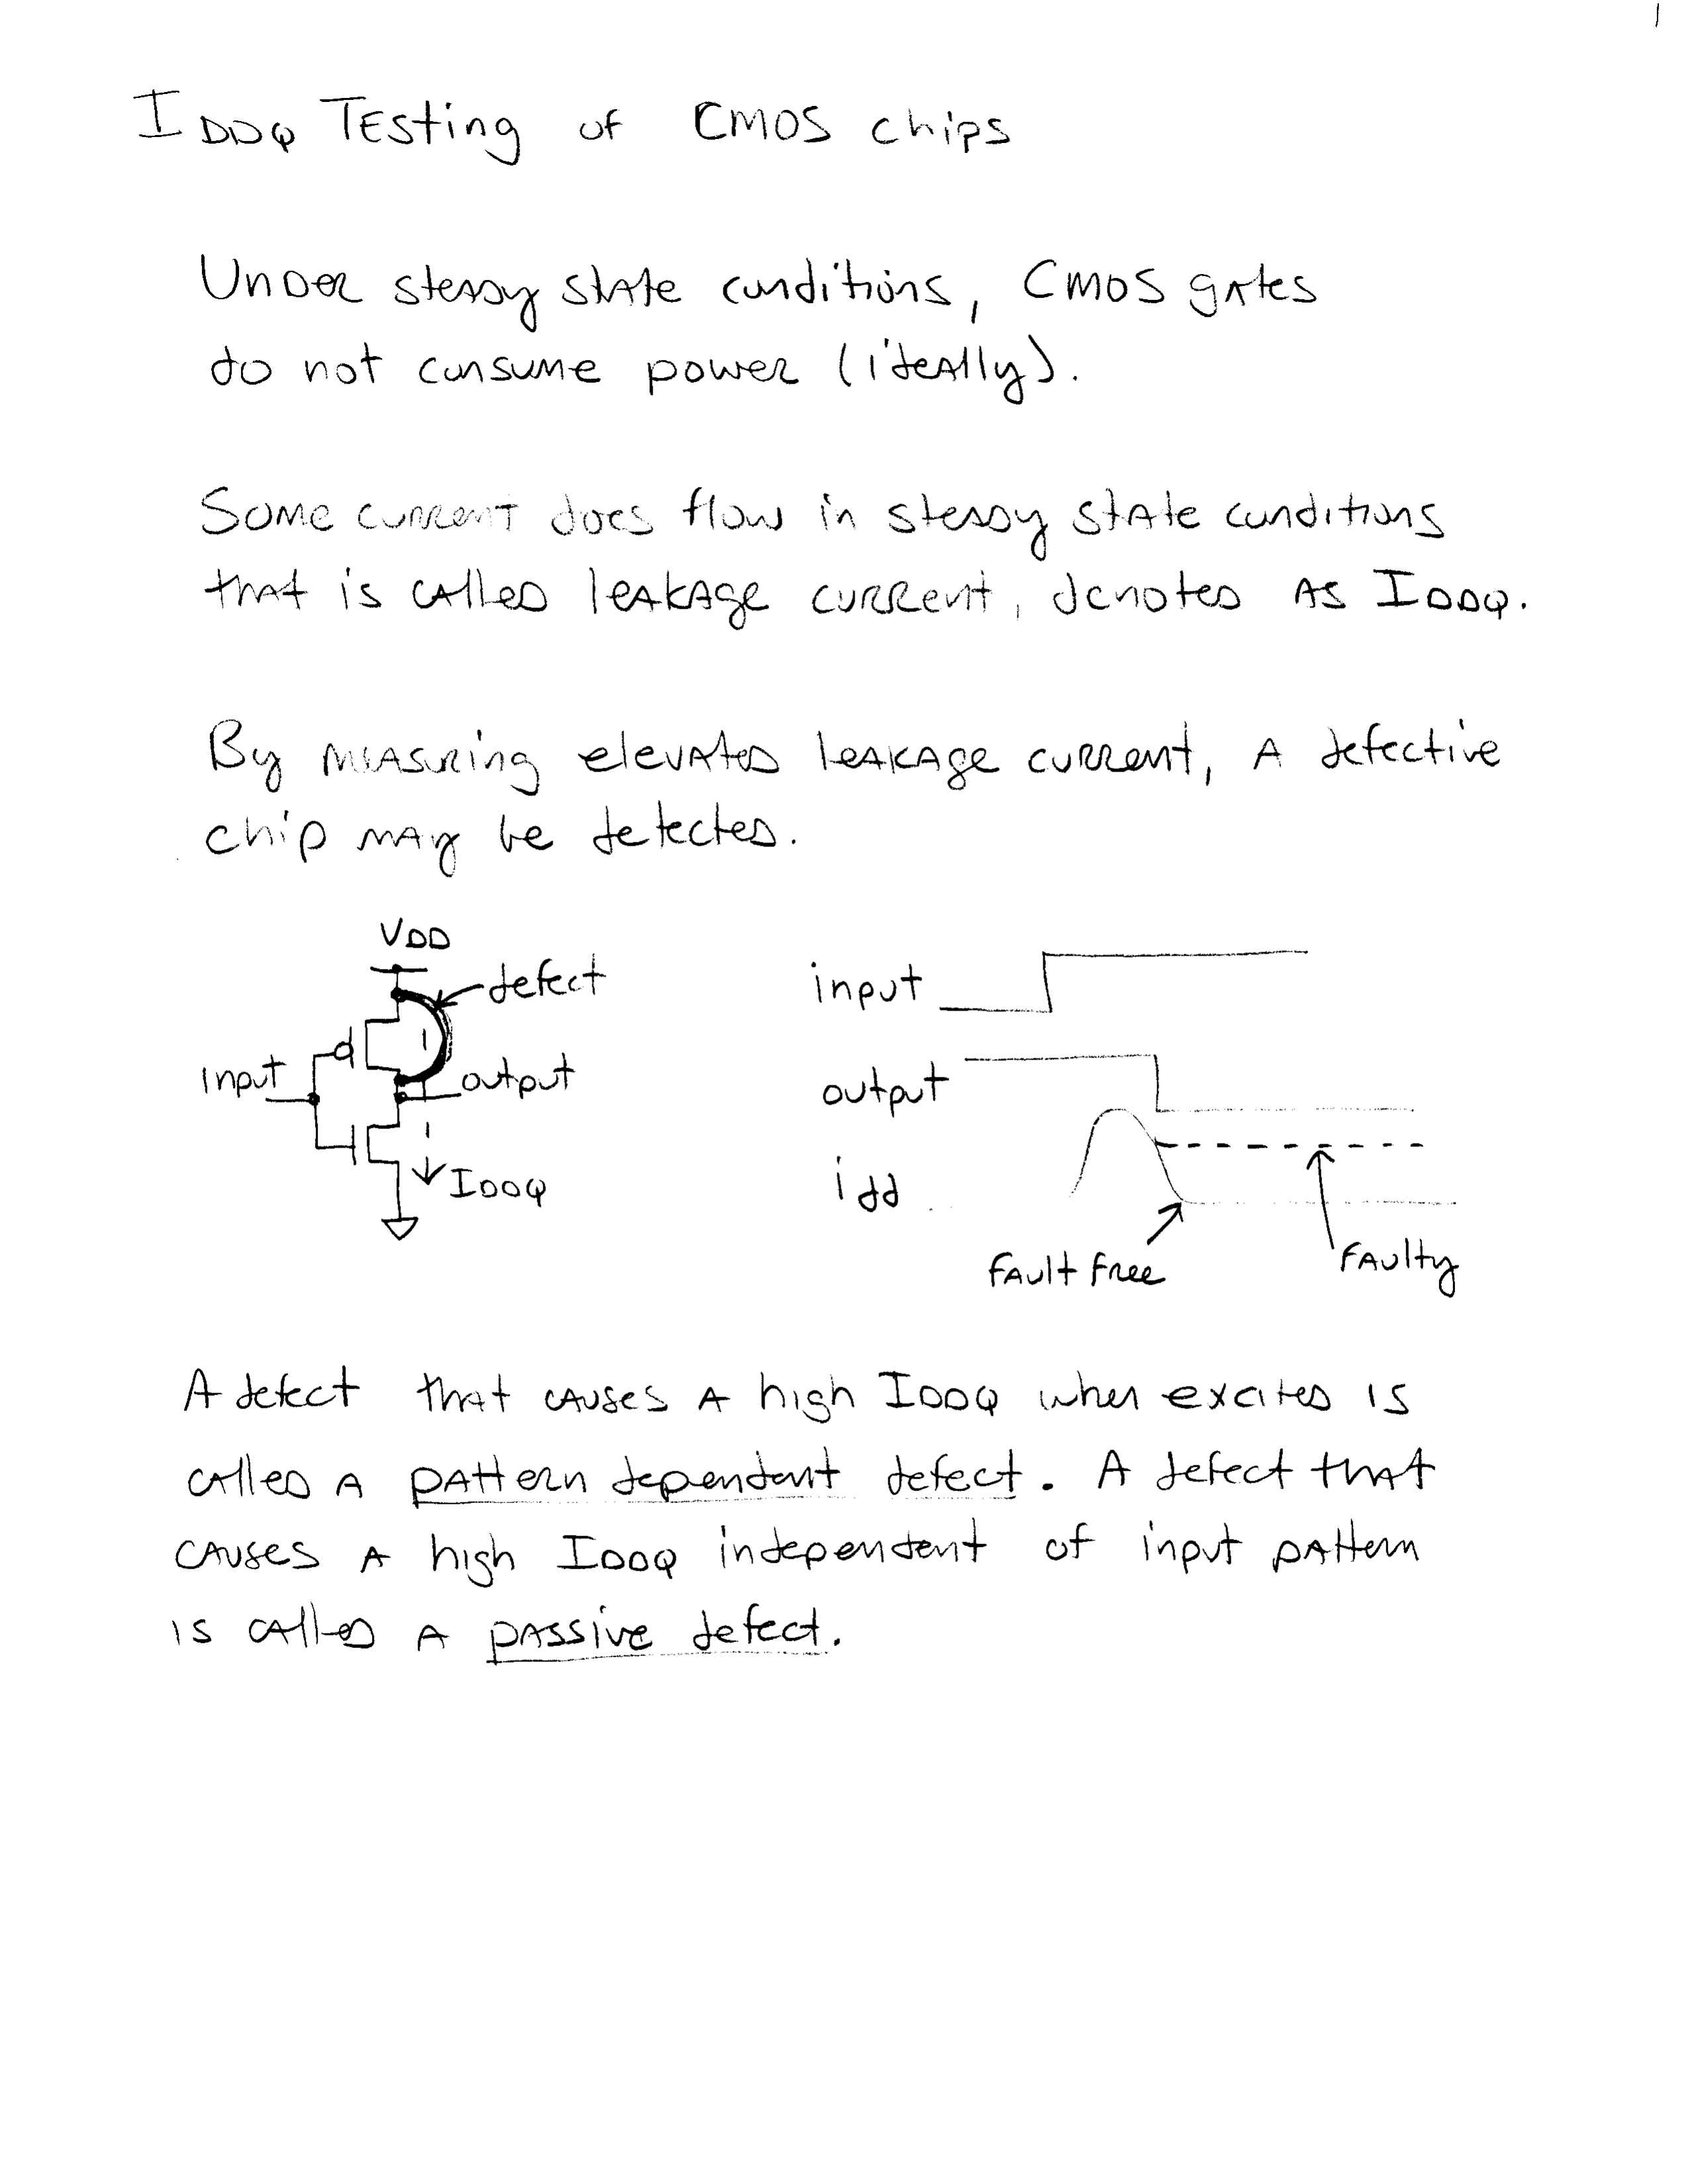 1
IDDQ Testing of CMOS chips
Under steady state conditions, CMOS gates
do not consume power (ideally).
Some current does flow in steady state conditions
that is called leakage current, denoted as IDDQ.
By measuring elevated leakage current, a defective
chip may be detected.
VDD
defect
input
output
IDDQ
input
output
idd
fault free
faulty
A defect that causes a high IDDQ when excited is
called a pattern dependent defect. A defect that
causes a high IDDQ independent of input pattern
is called a passive defect.